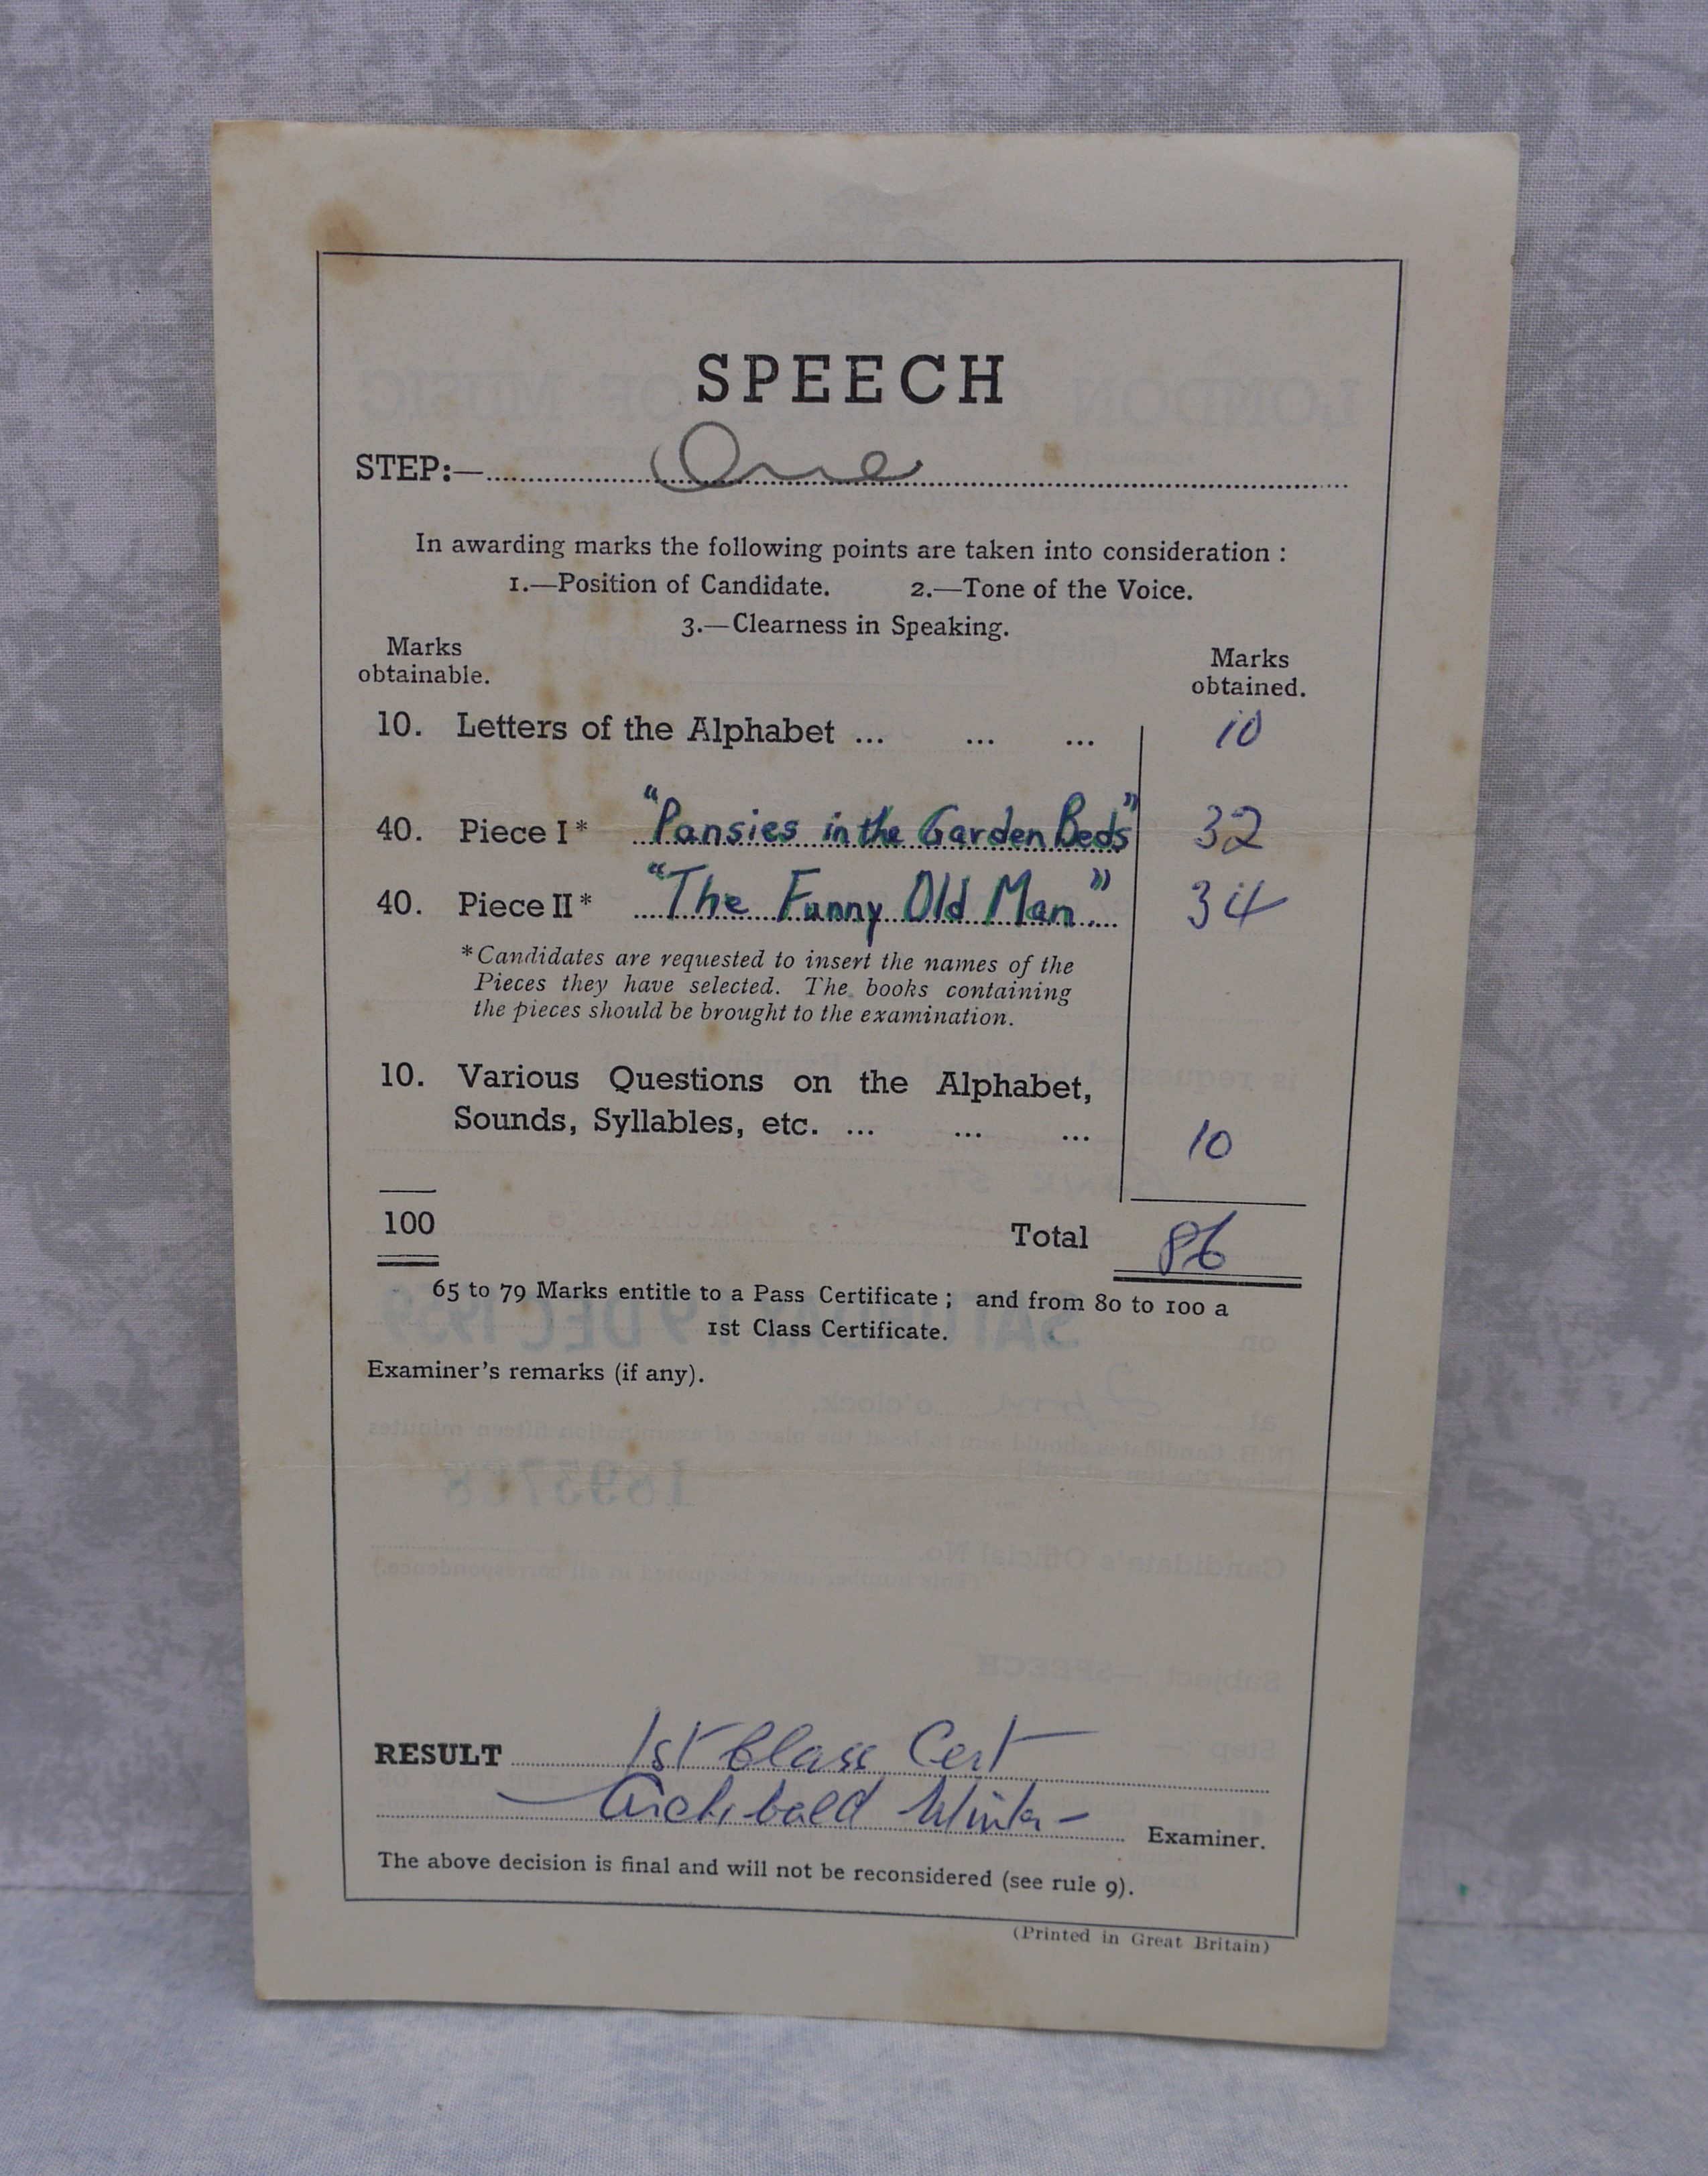 SPEECH
STEP:— One
In awarding marks the following points are taken into consideration :
1.—Position of Candidate. 2.—Tone of the Voice.
3.—Clearness in Speaking.
Marks obtainable.
Marks obtained.
10. Letters of the Alphabet ... ... ... 10
40. Piece I* "Pansies in the Garden Beds" 32
40. Piece II* "The Funny Old Man" 34
*Candidates are requested to insert the names of the
Pieces they have selected. The books containing
the pieces should be brought to the examination.
10. Various Questions on the Alphabet,
Sounds, Syllables, etc. ... ... ... 10
100 Total 86
65 to 79 Marks entitle to a Pass Certificate ; and from 80 to 100 a
1st Class Certificate.
Examiner's remarks (if any).
RESULT 1st Class Cert
Archibald Winter Examiner.
The above decision is final and will not be reconsidered (see rule 9).
(Printed in Great Britain)